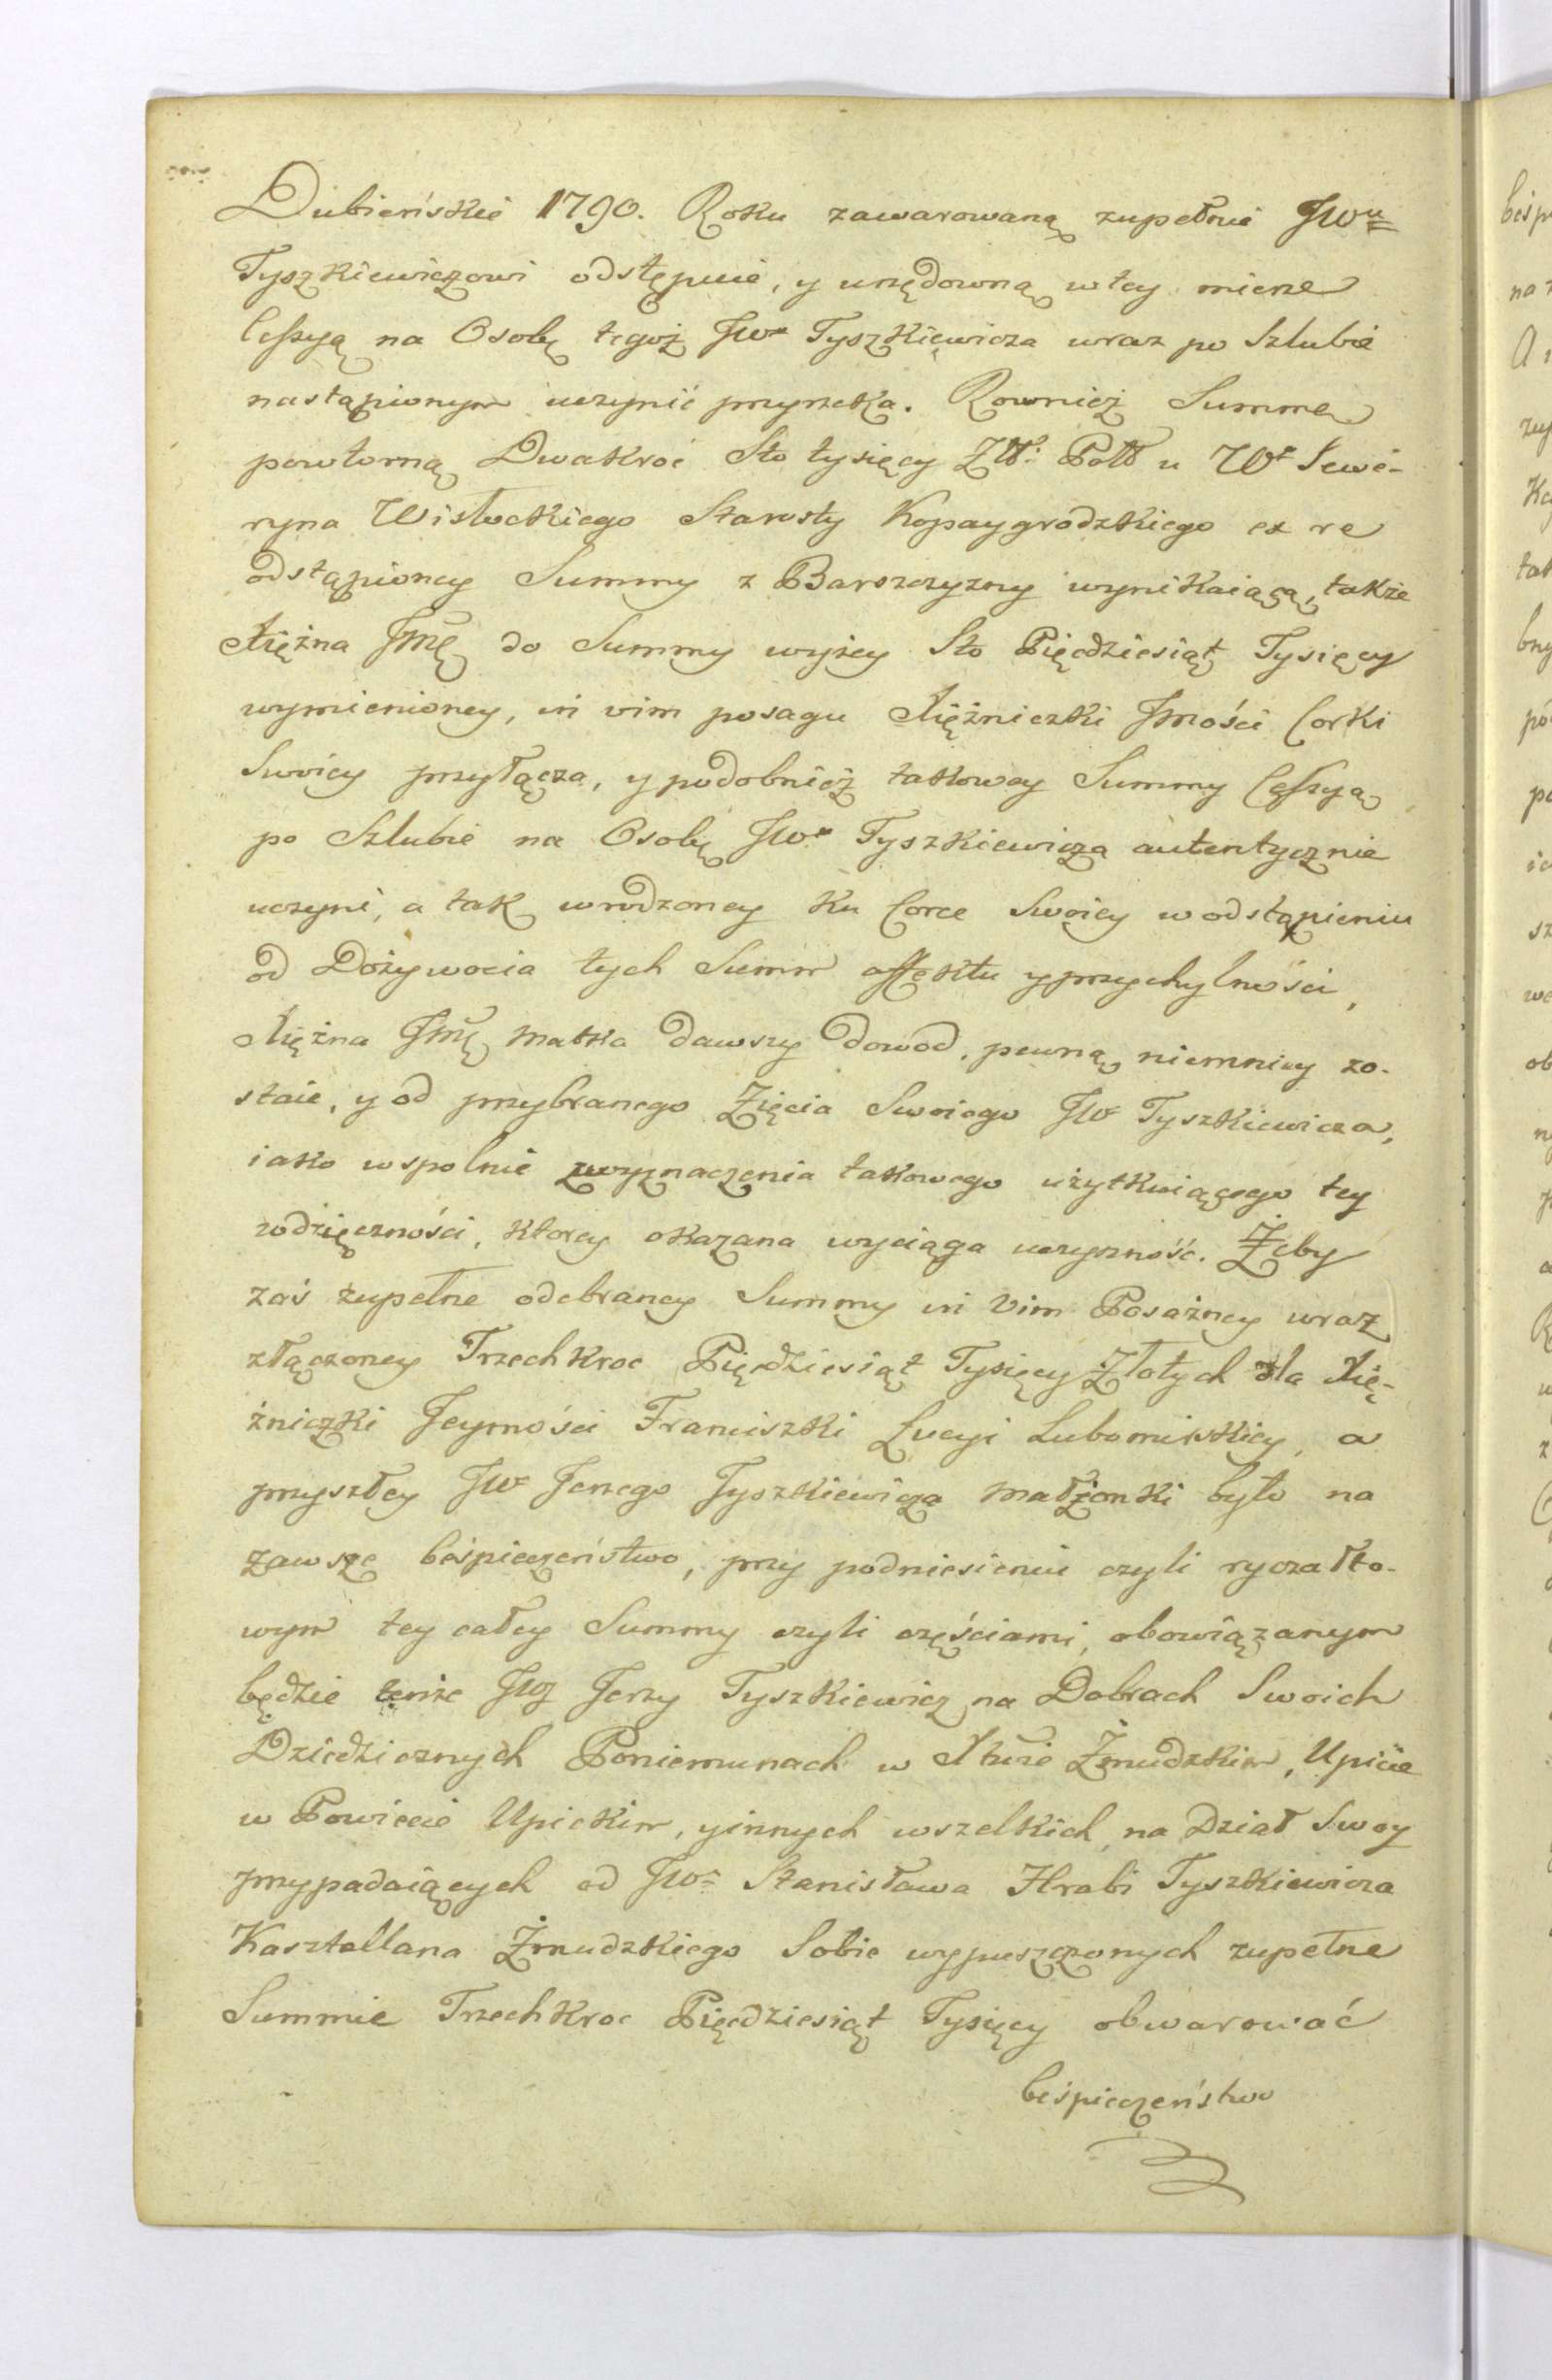 Dubieńskie 1790. Roku zawarowaną zupełnie JWu
Tyszkiewiczowi odstępuie, y urzędowną w tey mierze
Cessyą na Osobę tegoż JWo Tyszkiewicza wraz po Szlubie
nastąpionym uczynić przyrzeka. Rownież Summę
powtorną Dwakroć Sto tysięcy Złt: Polł u Wo Sewe-
ryna Wisłockiego Starosty Kopaygrodzkiego ex re
odstąpioney Summy z Barszczyzny wynikaiącą, także
Xiężna Jmę do Summy wyżey Sto Pięcdziesiąt Tysięcy
wymienioney, in vim posagu Xiężniczki Jmości Corki
Swoiey przyłącza, y podobnież takowey Summy Cessyą
po Szlubie na Osobę JWo Tyszkiewicza autentycznie
uczyni, a tak wrodzoney ku Corce Swoiey w odstąpieniu
od Dożywocia tych Summ affektu y przychylności,
Xiężna Jmę Matka dawszy dowod, pewną niemniey zo-
staie, y od przybranego Zięcia Swoiego JW Tyszkiewicza,
iako wspolnie z wyznaczenia takowego użytkuiącego tey
wdzięczności, ktorey okazana wyciąga uczynność. Żeby
zaś zupełne odebraney Summy in Vim Posażney wraz
złączoney Trzechkroc Pięcdziesiąt Tysięcy Złotych dla Xię-
żniczki Jeymości Franciszki Łucyi Lubomirskiey, a
przyszłey JW Jerzego Tyszkiewicza Małżonki było na
zawsze beśpieczeństwo, przy podniesieniu czyli ryczałto-
wym tey całey Summy czyli częściami, obowiązanym
będzie tenże JWJ Jerzy Tyszkiewicz na Dobrach Swoich
Dziedzicznych Poniemunach w Xtwie Żmudzkim, Upicie
w Powiecie Upickim, y innych wszelkich, na Dział Swoy
przypadaiących od JWo Stanisława Hrabi Tyszkiewicza
Kasztellana Żmudzkiego Sobie wypuszczonych zupełne
Summie Trzechkroc Pięcdziesiąt Tysięcy obwarować
beśpieczeństwo